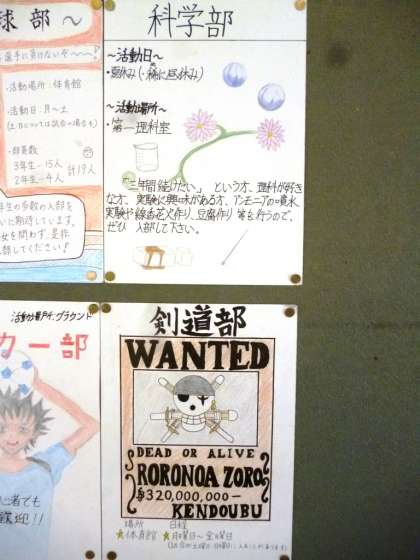 球部～
選手に負けないぞ～〜!
・活動場所：体育館
・活動日：月～土
・部員数
3年生-15人
2年生-4人
計19人
年生の多数の入部を
いに期待しています。
女を問わず、是非
部してください!
科学部
～活動日～
～活動場所～
・第一理科室
「三年間続けたい」という方、理科が好き
な方、実験に興味がある方、アンモニアの噴水
実験や線香花火作り、豆腐作り等を行うので、
ぜひ入部して下さい。
活動場所：グラウンド
カー部
者でも
歓迎!!
剣道部
WANTED
DEAD OR ALIVE
RORONOA ZORO
฿320,000,000-
KENDOUBU
場所 日程
★体育館 ★月曜日～金曜日